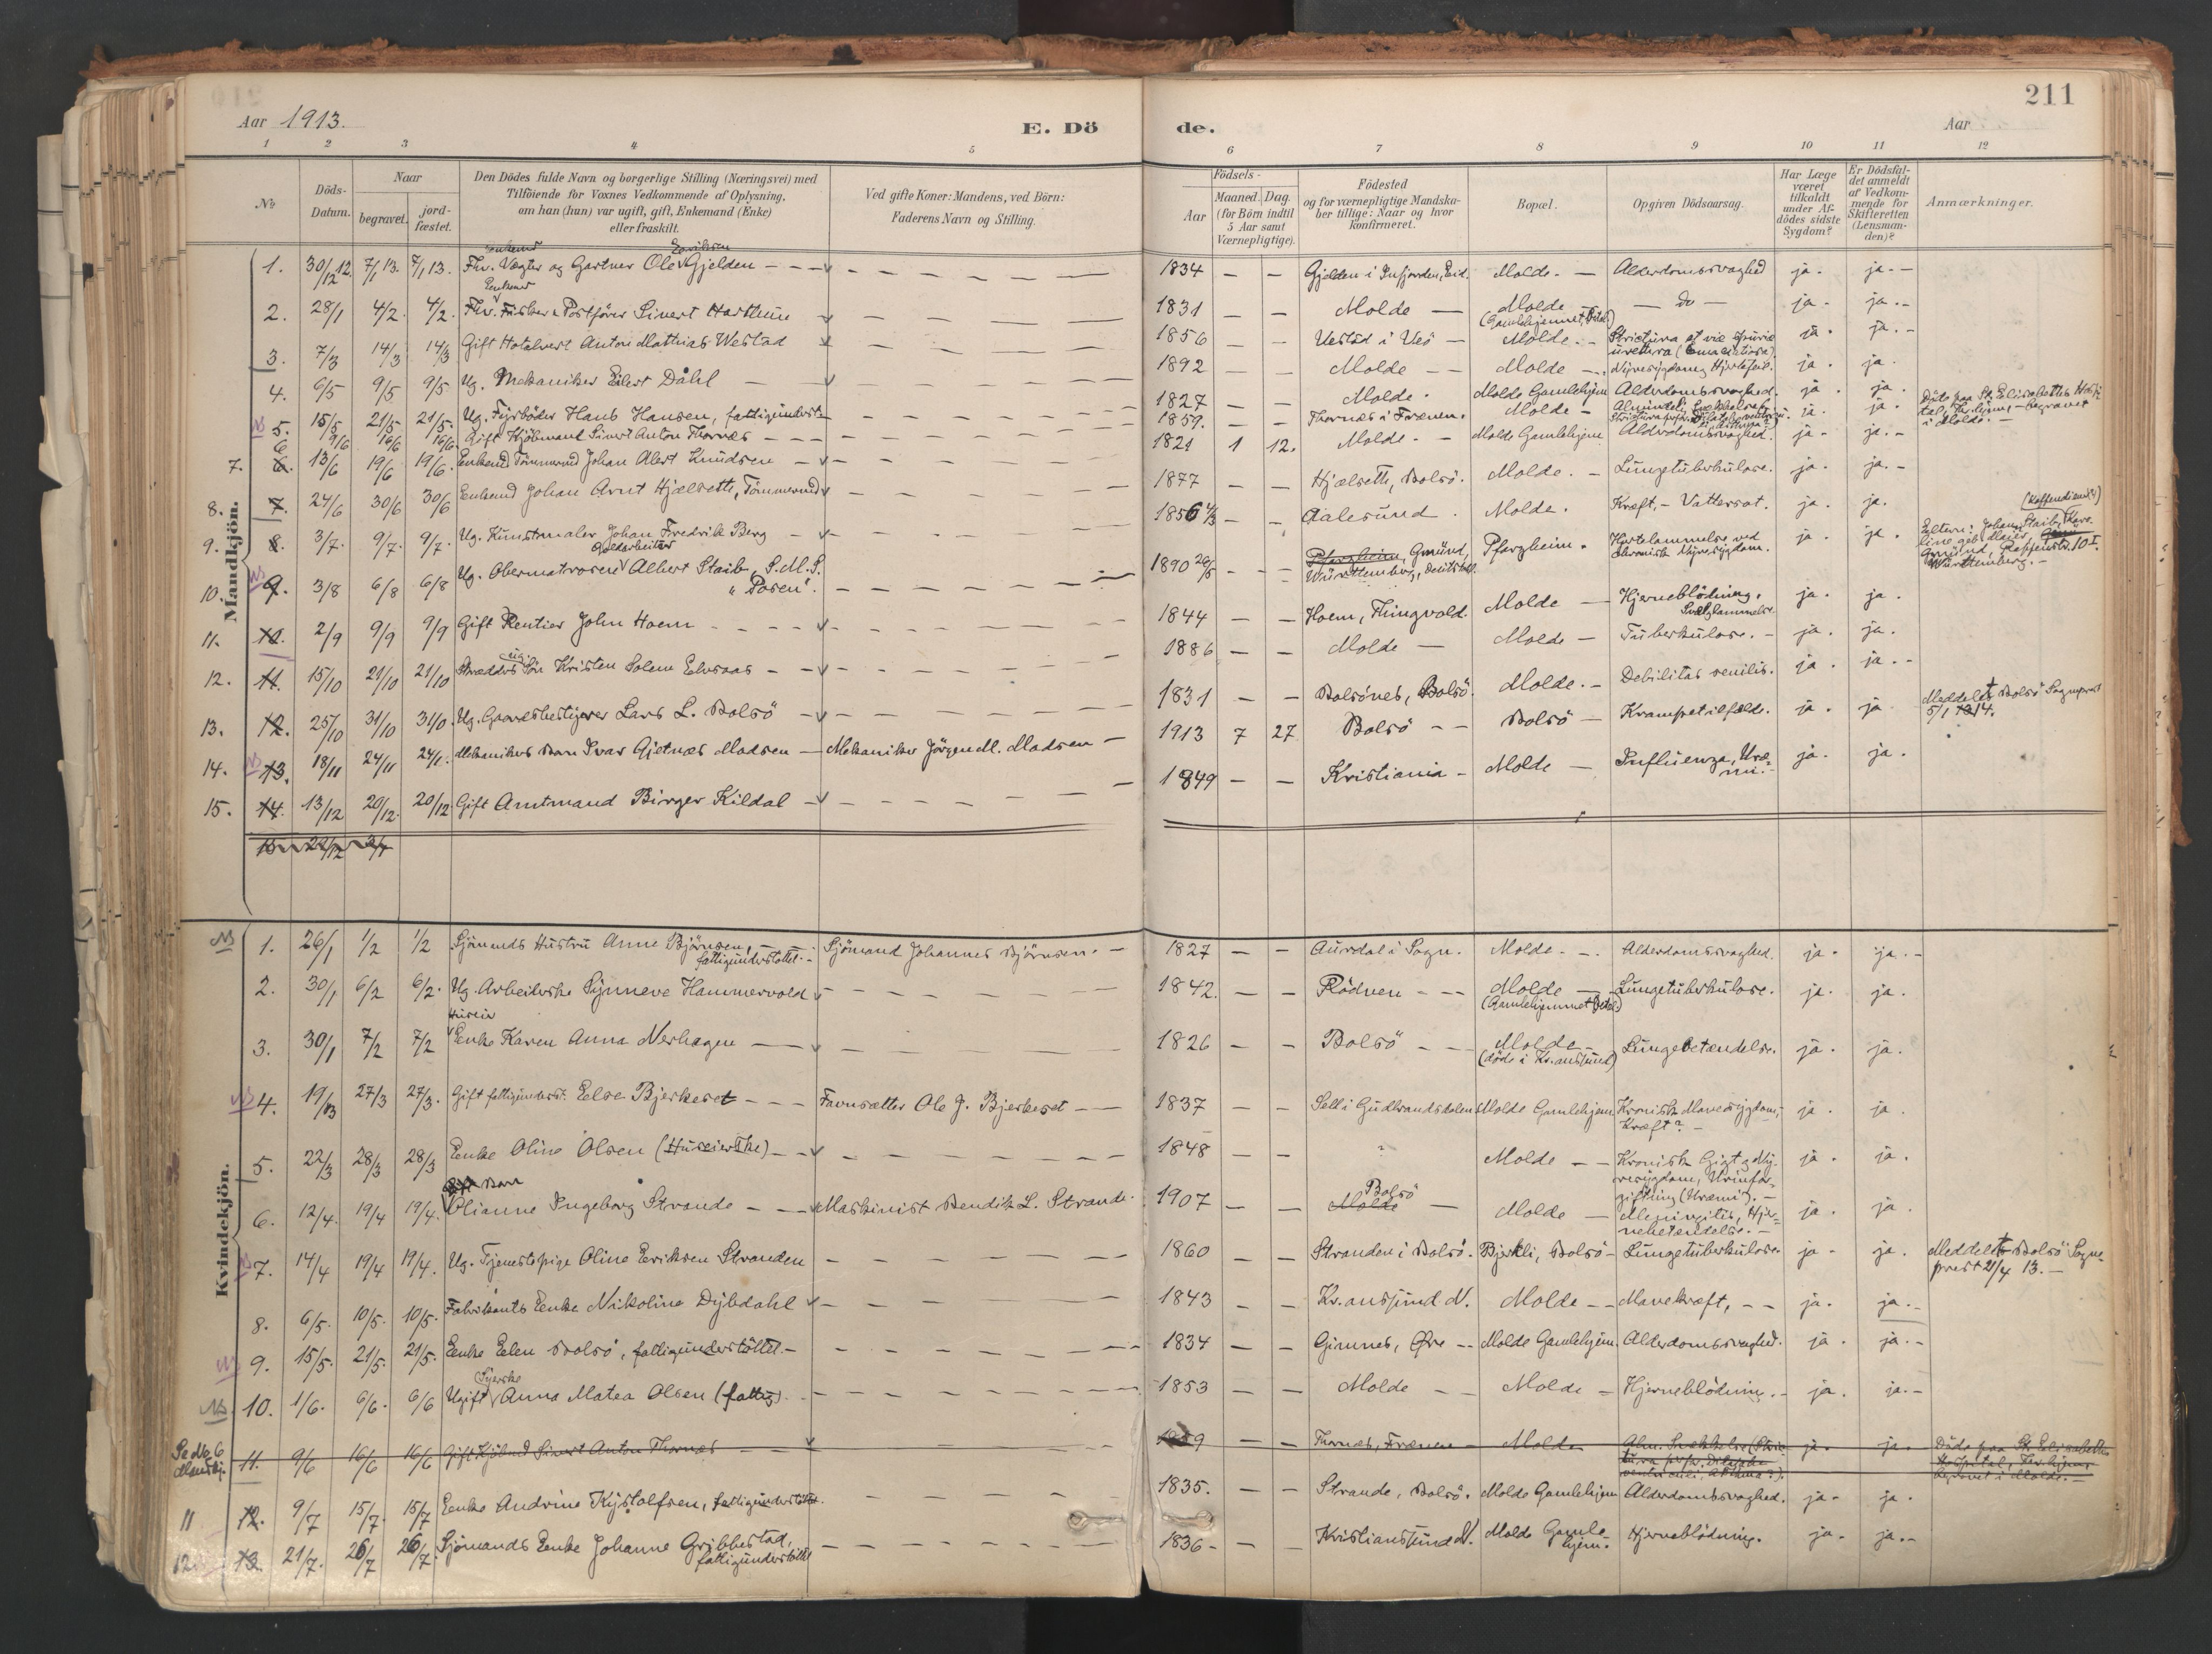 211
Aar 1913.
E. Dö de.
Aar
1 2 3 4 5 6 7 8 9 10 11 12
No.
Döds-Datum.
Naar
begravet.
jord-fæstet.
Den Dödes fulde Navn og borgerlige Stilling (Næringsvei) med
Tilföiende for Voxnes Vedkommende af Oplysning,
om han (hun) var ugift, gift, Enkemand (Enke)
eller fraskilt.
Ved gifte Koner: Mandens, ved Börn:
Faderens Navn og Stilling.
Födsels-
Aar
Maaned. Dag.
(for Börn indtil
5 Aar samt
Værnepligtige).
Födested
og for værnepligtige Mandska-
ber tillige: Naar og hvor
konfirmeret.
Bopæl.
Opgiven Dödsaarsag.
Har Læge
været
tilkaldt
under Af-
dödes sidste
Sygdom?
Er Dödsfal-
det anmeldt
af Vedkom-
mende for
Skifteretten
(Lensman-
den)?
Anmærkninger.
Mandkjön.
1. 30/12 12. 7/1 13. 7/1 13. Fhv. Vægter og Gartner Ole Eriksen Gjelden 1834 Gjelden i Insfjorden, Eid. Molde. Alderdomssvaghed ja. ja.
2. 28/1 4/2. 4/2. Enkemd Fhv. Fisker & Postförer Sivert Hasthun 1831 Molde Molde (Gamlehjemmet) do ja. ja.
3. 7/3 14/3 14/3 Gift Hotelvert Anton Mathias Westad 1856 Vestad i Veö Molde. ja. ja.
4. 6/5 9/5 9/5 Ug. Mekaniker Eilert Dahl 1892 Molde Molde Nyresygdom, Hjertefeil. ja. ja.
5. 15/5 21/5 21/5. Ug. Fyrböder Hans Hansen, fattigunderst. 1827 Molde. Molde Gamlehjem Alderdomssvaghed. ja. ja.
6 9/6 16/6 16/6. Gift Kjöbmand Sivert Anton Thornæs 1859. Thornæs i Frænen. Molde ja. ja. Döde paa St. Elisabeths Hospi-
tal, Tr.hjem, begravet
i Molde.
7. 6. 13/6 19/6 19/6. Enkemd Tömmermd Johan Alert Knudsen 1821 1 12. Molde. Molde Gamlehjem Alderdomssvaghed. ja. ja.
8. 7. 24/6 30/6 30/6 Enkemd Johan Arnt Hjelset, Tömmermd 1877 Hjelset, Bolsö. Molde. Lungetuberkulose. ja. ja.
9. 8. 3/7. 9/7. 9/7. Ug. Kunstmaler Johan Fredrik Berg 1856 4/3 Aalesund. Molde. Kræft, Vattersot. ja. ja.
10. 9. 3/8 6/8 6/8 Ug. Obermatrosen Goldarbeiter Albert Staib, S.M.S.
"Posen". 1890 20/5 Pforzheim, Gmünd,
Württemberg Pforzheim. Hjertelammelse ved
kronisk Nyresygdom. ja. ja. Eltern: Johann Staib, Karo-
line geb. Maier,
Gmünd,
Württemberg.
11. 10. 2/9 9/9 9/9 Gift Rentier John Hoem 1844 Hoem, Thingvold. Molde Hjerneblödning. Svælglammelse. ja. ja.
12. 11. 15/10 21/10 21/10 Skrædders Sön ug. Kristen Solem Elvsaas 1886 Molde Molde Tuberkulose. ja. ja.
13. 12. 25/10 31/10 31/0. Ug. Gaardbestyrer Lars L. Bolsö 1831 Bolsönes, Bolsö. Molde. Debilitas senilis. ja. ja.
14. 13. 18/11 24/11 24/1. Mekanikers Barn Ivar Gjetnæs Madsen Mekaniker Jörgen M. Madsen 1913 7 27 Bolsö Bolsö Krampetilfælde. ja. ja Meddelt Bolsö Sogneprest
5/1 1914.
15. 14. 13/12 20/12. 20/12. Gift Amtmand Birger Kildal 1849 Kristiania Molde Influenza, Uræ-
mi. ja. ja.
Kvindekjön.
NB 1. 26/1 1/2 1/2 Sjömands Hustru Anne Björnsen,
fattigunderstöttet. Sjömand Johannes Björnsen. 1827 Aurdal i Sogn. Molde. Alderdomssvaghed. ja. ja.
2. 30/1 6/2 6/2. Ug. Arbeiderske Synneve Hammervold 1842. Rödven Molde (Gamlehjemmet) Lungetuberkulose. ja. ja.
3. 30/1 7/2 7/2 Enke Karen Anna Nerhagen 1826 Bolsö Molde
(döde i Kr.anssund) Lungebetændelse. ja. ja.
NB 4. 19/3 27/3 27/3. Gift fattigunderst. Else Bjerkeset Favnsætter Ole J. Bjerkeset 1837 Sell i Gudbrandsdalen Molde Gamlehjem Kronisk Mavesygdom,
Kræft? ja. ja.
5. 22/3 28/3 28/3 Enke Oline Olsen (Huseierske) 1848 Molde Kronisk Gigt & Ny-
resygdom, Urinfor-
giftning (Uræmi). ja. ja.
6. 12/4. 19/4 19/4. Barn Olianne Ingeborg Strande Maskinist Bendik L. Strande. 1907 Bolsö Molde Molde Meningitis, Hjer-
nebetændelse. ja. ja.
NB 7. 14/4 19/4 19/4. Ug. Tjenestepige Oline Eriksen Stranden 1860 Stranden i Bolsö. Bjerkli, Bolsö Lungetuberkulose ja. ja. Meddelt Bolsö Sogne-
prest 21/4 13.
8. 6/5. 10/5. 10/5. Fabrikants Enke Nikoline Dybdahl 1843 Kr.anssund N. Molde Mavekræft, ja. ja.
NB 9. 15/5. 21/5. 21/5. Enke Elen Bolsö, fattigunderstöttet. 1834 Gimnes, Öre Molde Gamlehjem. Alderdomssvaghed. ja. ja.
NB. 10. 1/6. 6/6. 6/6 Ugift Syerske Anna Matea Olsen (fattig). 1853 Molde Molde Hjerneblödning. ja. ja.
Se No 6
Mandkj. 11. 9/6 16/6 16/6 Gift Kjöbmd Sivert Anton Thornæs 1859 Thornæs, Frænen Molde ja. ja. Döde paa St. Elisabeths
Hospital,
begravet i Molde.
11 12. 9/7 15/7. 15/7 Enke Andrine Kystolfsen, fattigunderstöttet. 1835. Strande, Bolsö. Molde Gamlehjem Alderdomssvaghed. ja. ja.
12. 13. 21/7. 26/7 26/7 Sjömands Enke Johanne Gribbestad,
fattigunderstöttet 1836 Kristianssund N. Molde Gamle-
hjem. Hjerneblödning. ja. ja.